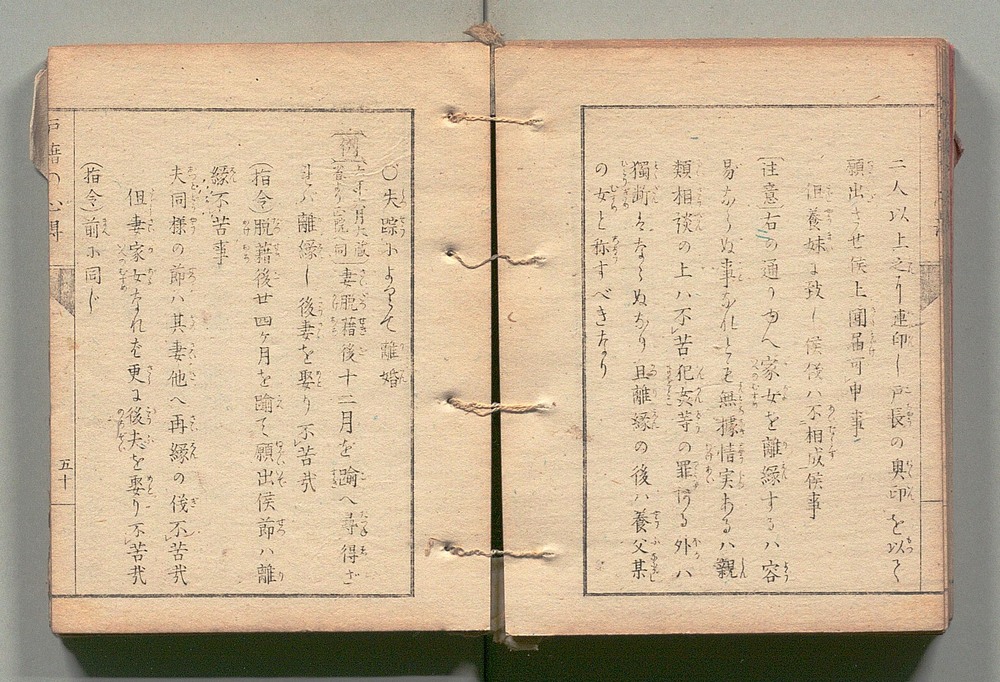 二人以上之より連印し戸長の奥印を以て
願出させ候上聞届可申事
但養妹に致し候儀ハ不相成候事
(注意)右の通りゆへ家女を離縁するハ容
易ならぬ事なれとも無據情実あるハ親
類相談の上ハ不苦犯姦等の罪ある外ハ
獨断はならぬなり且離縁の後ハ養父某
の女と称すべきなり
〇失踪によりて離婚
妻脱籍後十二月を踰へ尋得ざ
れバ離縁し後妻を娶り不苦哉
(指令)脱籍後廿四ヶ月を踰て願出候節ハ離
縁不苦事
夫同様の節ハ其妻他へ再縁の儀不苦哉
但妻家女なれを更に後夫を娶り不苦哉
(指令)前に同じ
五十